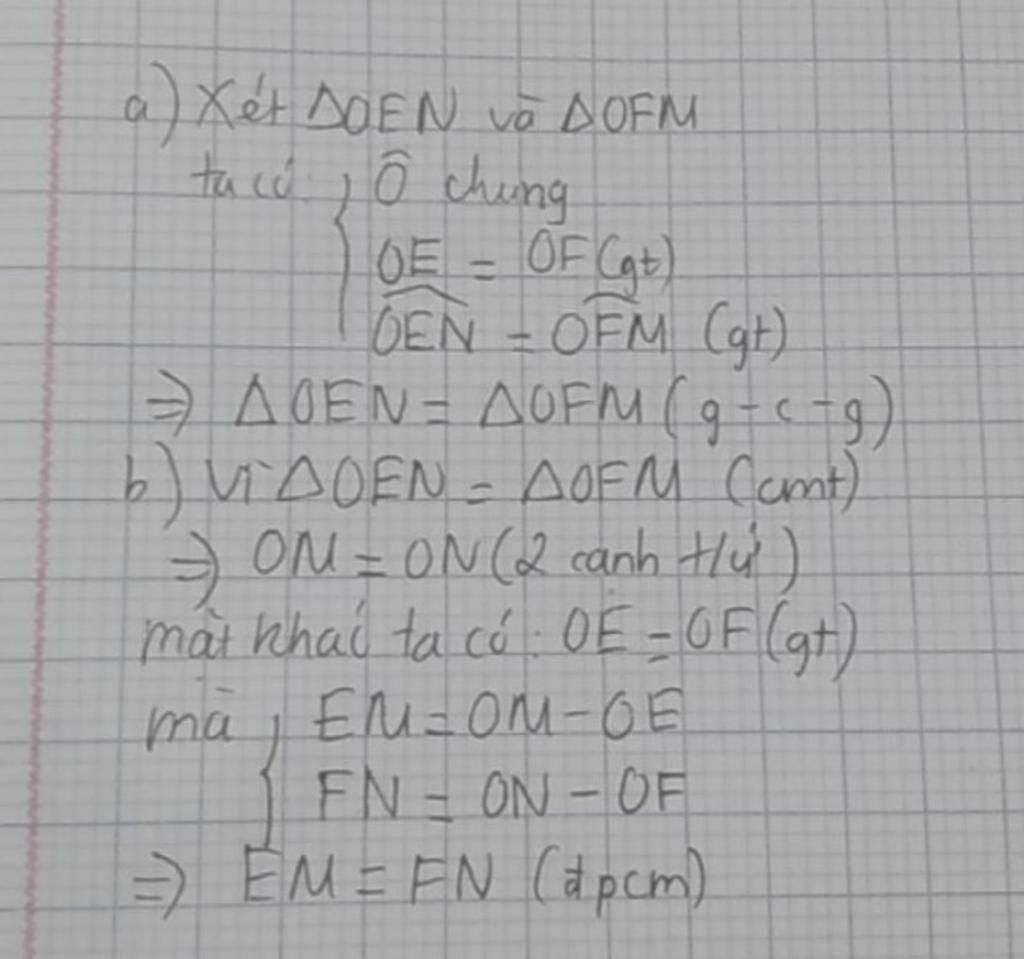 a) Xét ΔOEN và ΔOFM
ta có { Ô chung
OE = OF (gt)
\widehat{OEN} = \widehat{OFM} (gt)
⇒ ΔOEN = ΔOFM (g-c-g)
b) Vì ΔOEN = ΔOFM (cmt)
⇒ OM = ON (2 cạnh t/ứ)
mặt khác ta có: OE = OF (gt)
mà { EM = OM - OE
FN = ON - OF
⇒ EM = FN (đpcm)